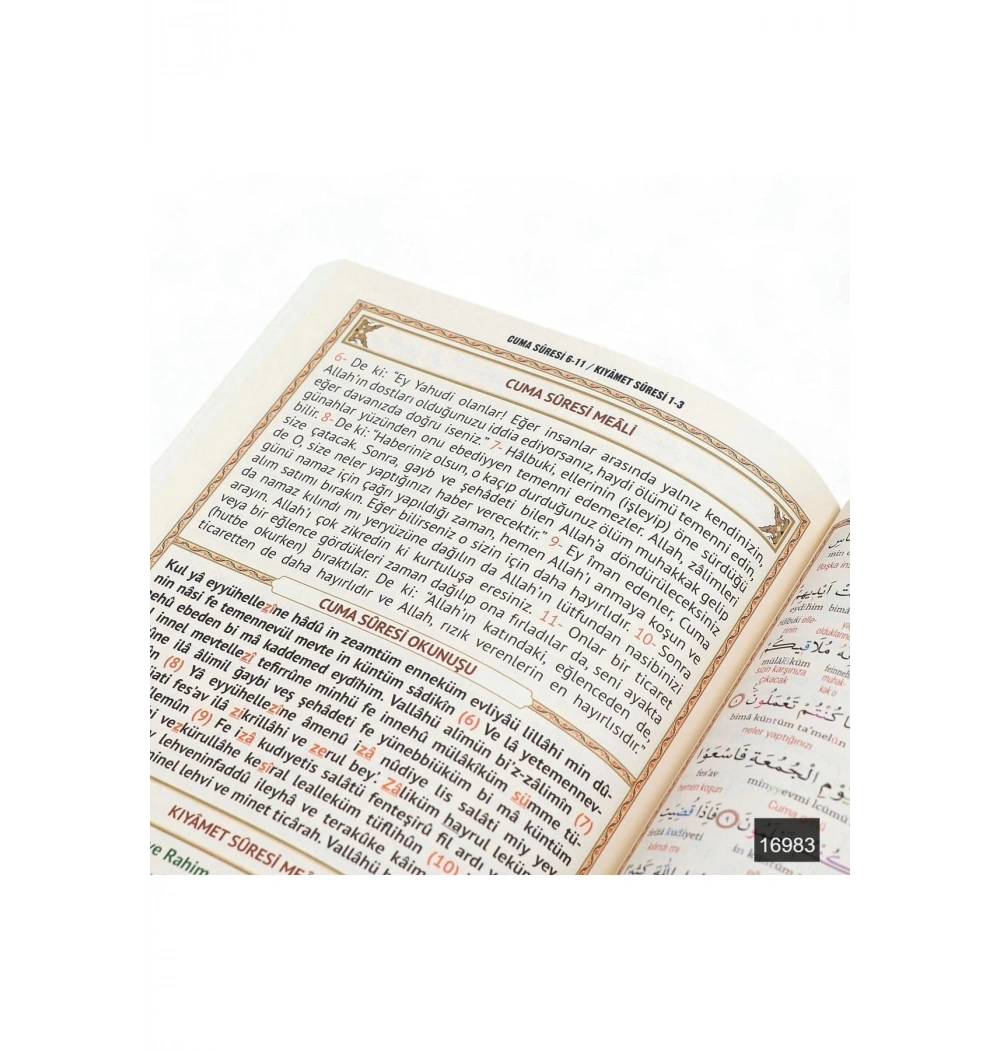 CUMA SÛRESİ 6-11 / KIYÂMET SÛRESİ 1-3
CUMA SÛRESİ MEÂLİ
6- De ki: "Ey Yahudi olanlar! Eğer insanlar arasında yalnız kendinizin,
Allah'ın dostları olduğunuzu iddia ediyorsanız, haydi ölümü temenni edin,
eğer davanızda doğru iseniz." 7- Hâlbuki, ellerinin (işleyip) öne sürdüğü
günahlar yüzünden onu ebediyyen temenni edemezler. Allah, zâlimleri
bilir. 8- De ki: "Haberiniz olsun, o kaçıp durduğunuz ölüm muhakkak gelip
size çatacak. Sonra, gayb ve şehâdeti bilen Allah'a döndürüleceksiniz
de O, size neler yaptığınızı haber verecektir." 9- Ey îman edenler! Cuma
günü namaz için çağrı yapıldığı zaman, hemen Allah'ı anmaya koşun ve
alım satımı bırakın. Eğer bilirseniz o sizin için daha hayırlıdır. 10- Sonra
da namaz kılındı mı yeryüzüne dağılın da Allah'ın lütfundan nasibinizi
arayın. Allah'ı çok zikredin ki kurtuluşa eresiniz. 11- Onlar bir ticaret
veya bir eğlence gördükleri zaman dağılıp ona fırladılar da, seni ayakta
(hutbe okurken) bıraktılar. De ki: "Allah'ın katındaki, eğlenceden de,
ticaretten de daha hayırlıdır ve Allah, rızık verenlerin en hayırlısıdır."
CUMA SÛRESİ OKUNUŞU
Kul yâ eyyühellezîne hâdû in zeamtüm enneküm evliyâü lillâhi min dû-
nin nâsi fe temennevül mevte in küntüm sâdikîn (6) Ve lâ yetemennev-
nehû ebeden bi mâ kaddemed eydîhim. Vallâhü alîmün bi'z-zâlimîn (7)
innel mevtellezî tefirrûne minhü fe innehû mülâkîküm sümme tü-
ilâ âlimil ğaybi veş şehâdeti fe yünebbiüküm bi mâ küntüm
(8) Yâ eyyühellezîne âmenû izâ nûdiye lis salâti miy yev-
fes'av ilâ zikrillâhi ve zerul bey'. Zâliküm hayrul leküm
(9) Fe izâ kudıyetis salâtü fenteşirû fil ardı
vezkürullâhe kesîral lealleküm tüflihûn (10)
lehveninfaddû ileyhâ ve terakûke kâim
minel lehvi ve minet ticârah. Vallâhü
KIYÂMET SÛRESİ
ve Rahim
eydîhim
mülâkîküm
sizin karşınıza
çıkacak
مُلَاقِيكُمْ
كُنْتُمْ تَعْمَلُونَ
bimâ küntüm ta'melûn
neler yaptığınızı
الْجُمُعَةِ فَاسْعَوْا
fes'av
hemen koşun
Cuma günü
فَاِذَا قُضِيَتِ
16983